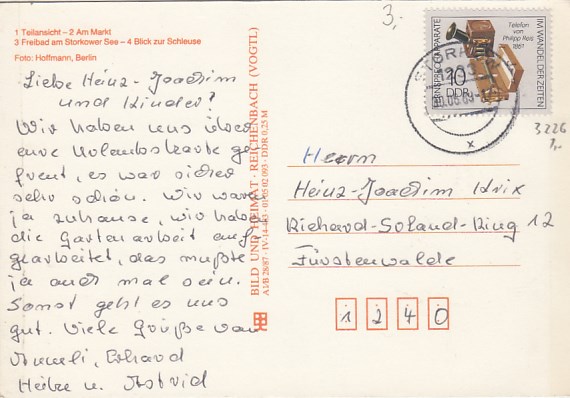 1 Teilansicht – 2 Am Markt
3 Freibad am Storkower See – 4 Blick zur Schleuse
Foto: Hoffmann, Berlin
Liebe Heinz-Joachim
und Kinder!
Wir haben uns über
eure Urlaubskarte ge
freut, es war sicher
sehr schön. Wir waren
ja zuhause, wir haben
die Gartenarbeit auf
gearbeitet, das mußte
ja auch mal sein.
Sonst geht es uns
gut. Viele Grüße von
Anneli, Erhard
Heike u. Astrid
BILD UND HEIMAT · REICHENBACH (VOGTL)
A1/B 28/87 · IV-14-483 · 01 05 02 092 · DDR 0,25 M
3,-
FERNSPRECHAPPARATE
IM WANDEL DER ZEITEN
Telefon
von
Philipp Reis
1861
10
DDR
x
3226
1,-
Herrn
Heinz-Joachim Krix
Richard-Soland-Ring 12
Fürstenwalde
1 2 4 0